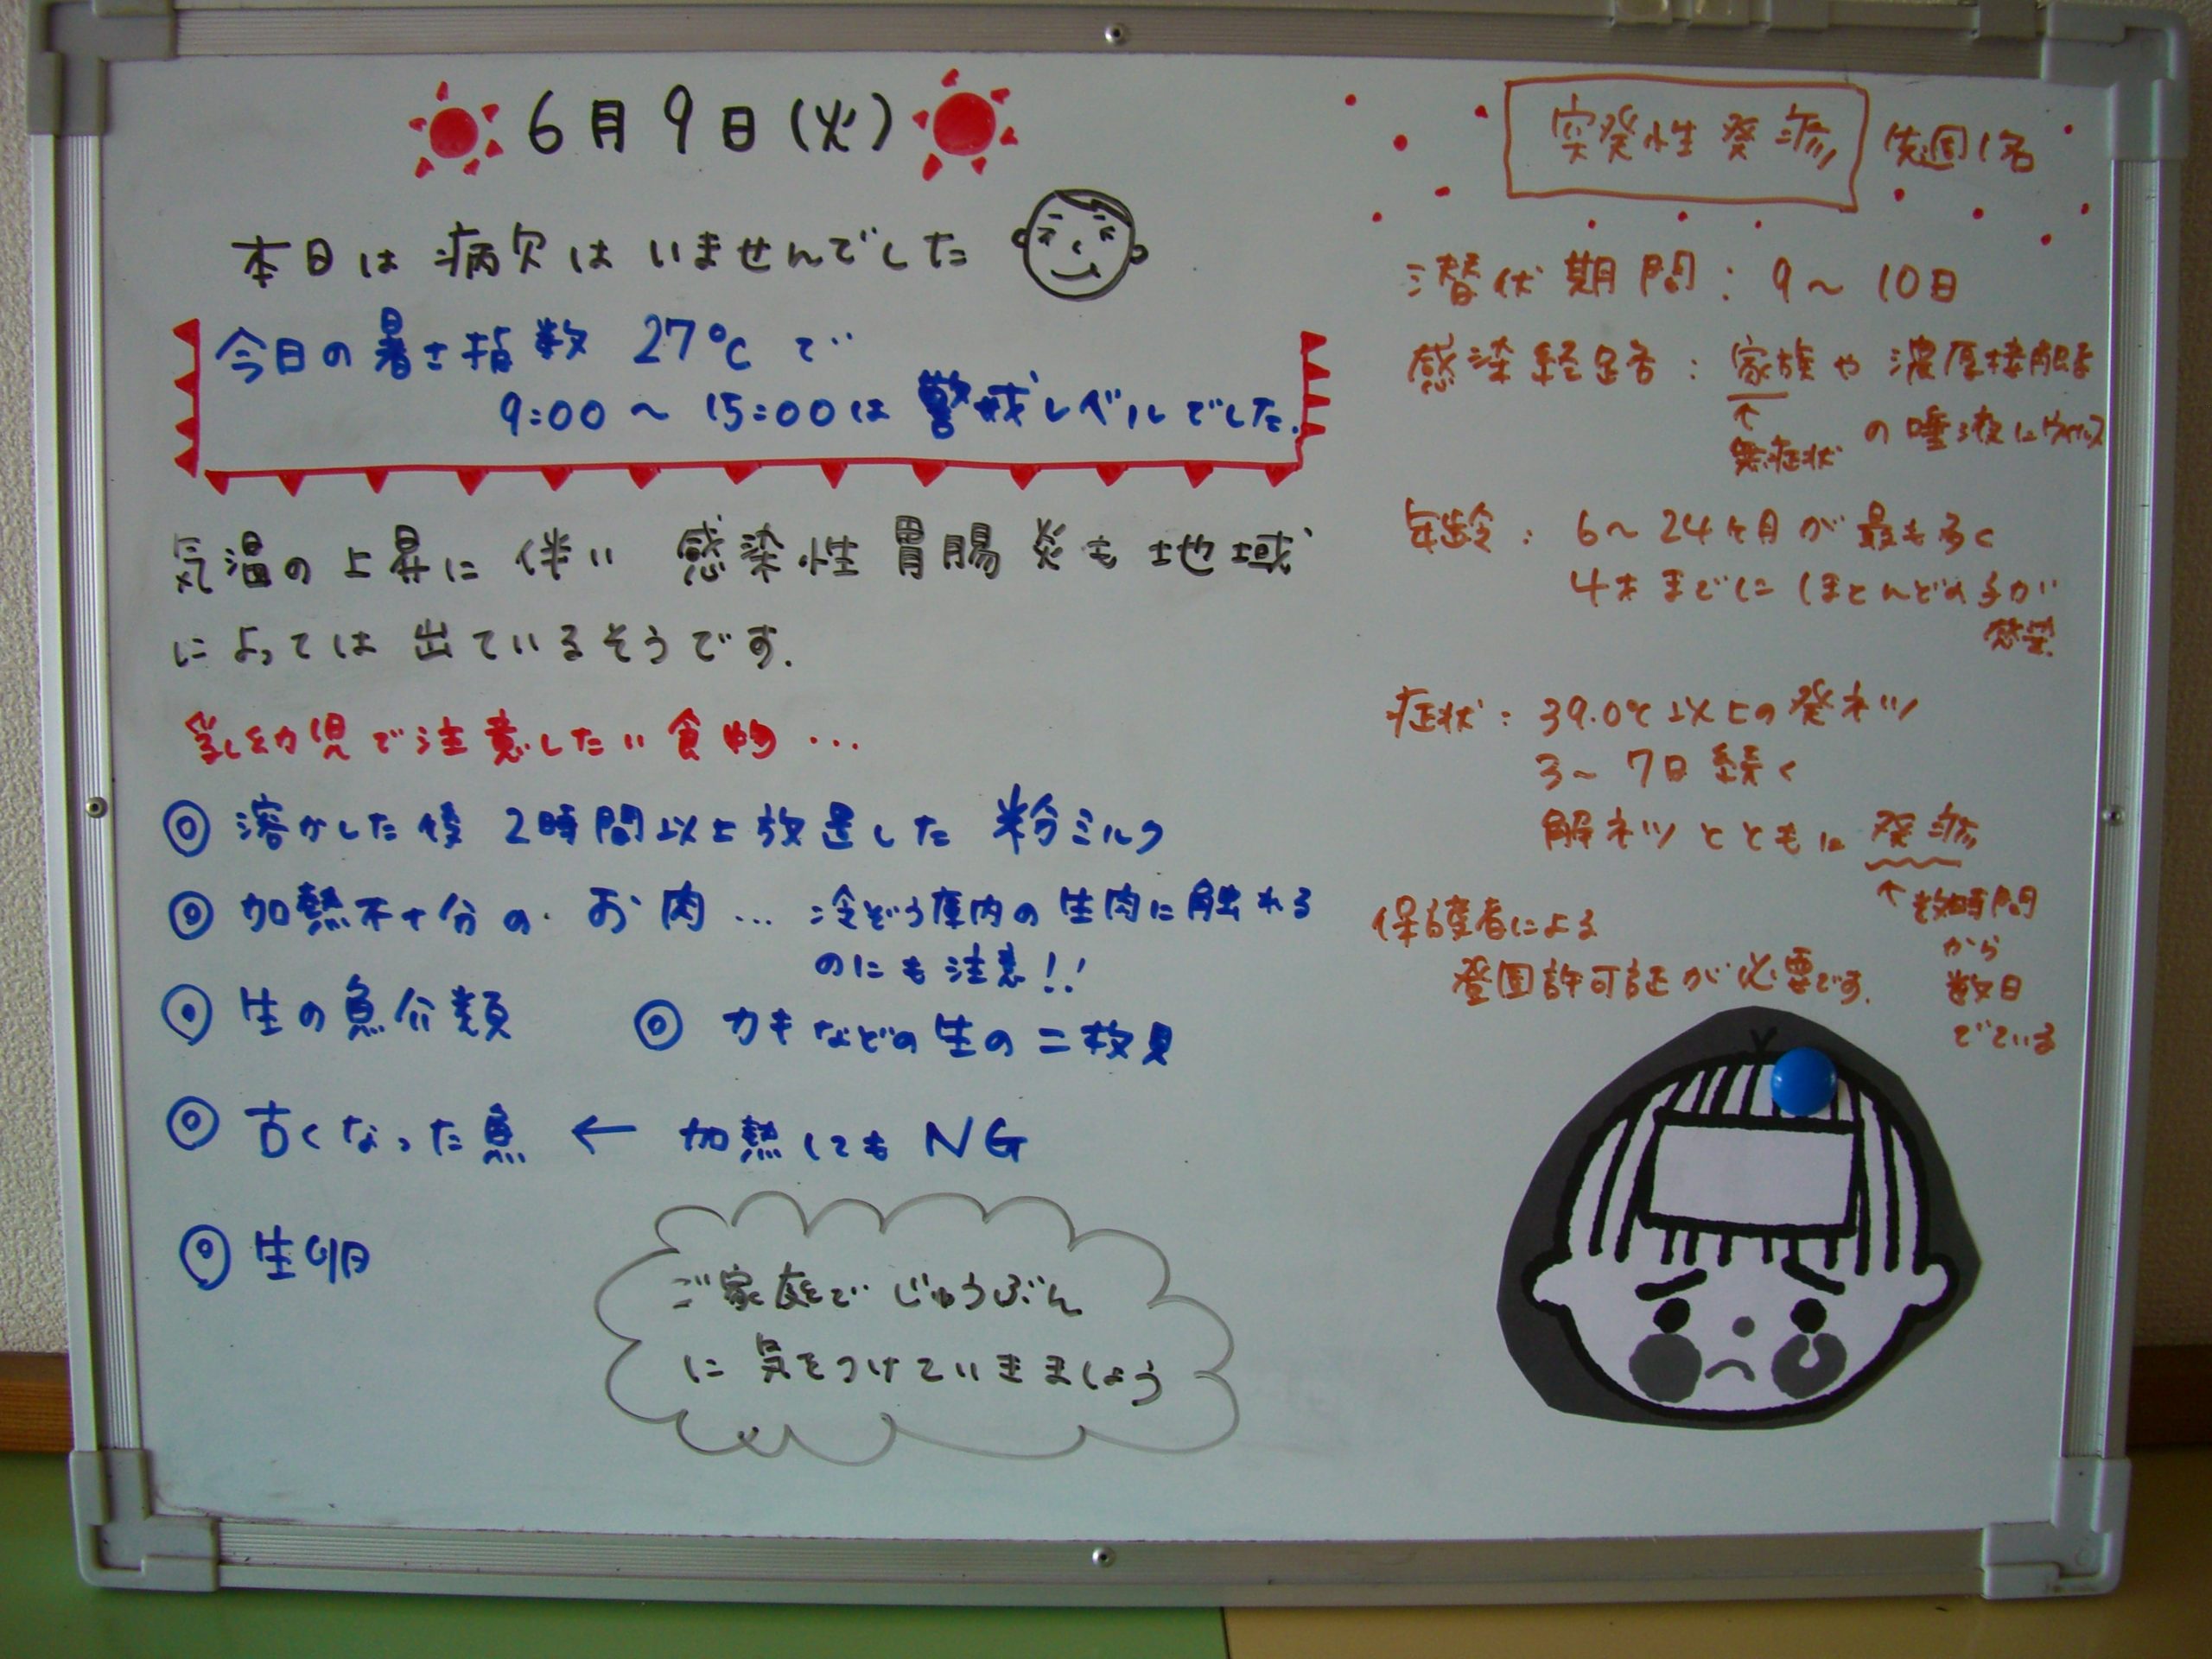 6月9日(火)
本日は病欠はいませんでした
今日の暑さ指数 27℃で
9:00～15:00は警戒レベルでした.
気温の上昇に伴い 感染性胃腸炎も地域
によっては出ているそうです.
乳幼児で注意したい食物…
◎ 溶かした後 2時間以上放置した 粉ミルク
◎ 加熱不十分の お肉… 冷ぞう庫内の生肉に触れる
のにも注意!!
◎ 生の魚介類 ◎ カキなどの生の二枚貝
◎ 古くなった魚 ← 加熱してもNG
◎ 生卵
ご家庭で じゅうぶん
に気をつけていきましょう
突発性発疹 先週1名
潜伏期間: 9～10日
感染経路: 家族や濃厚接触者
↑ の唾液にウイルス
無症状
年齢: 6～24ヶ月が最も多く
4才までにほとんどの子が
感染.
症状: 39.0℃以上の発ネツ
3～7日続く
解ネツとともに発疹
↑数時間
から
数日
でている
保護者による
登園許可証が必要です.